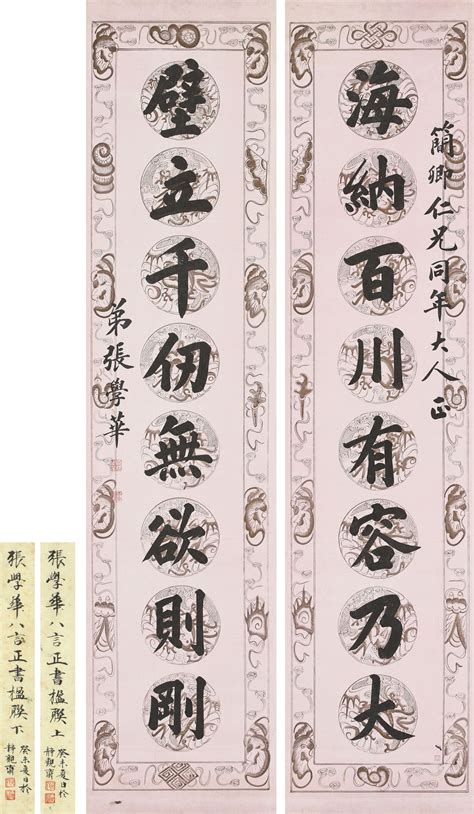 簡卿仁兄同年大人正
海納百川有容乃大
壁立千仞無欲則剛
弟張學華
張學華八言正書楹聯上
癸未夏日於
靜觀齋
張學華八言正書楹聯下
癸未夏日於
靜觀齋